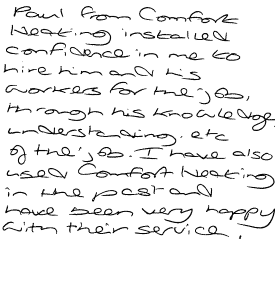 Paul from Comfort
Heating installed
confidence in me to
hire him and his
workers for the 'job,
through his knowledge,
understanding. etc
of the 'job. I have also
used Comfort Heating
in the past and
have been very happy
with their service.